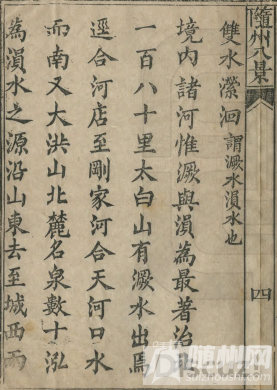 隨州八景
四
雙水瀠洄 謂㵐水溳水也
境內諸河惟㵐與溳為最著治北
一百八十里太白山有㵐水出焉
逕合河店至剛家河合天河口水
而南又大洪山北麓名泉數十泓
為溳水之源沿山東去至城西而
suizhoushi.com